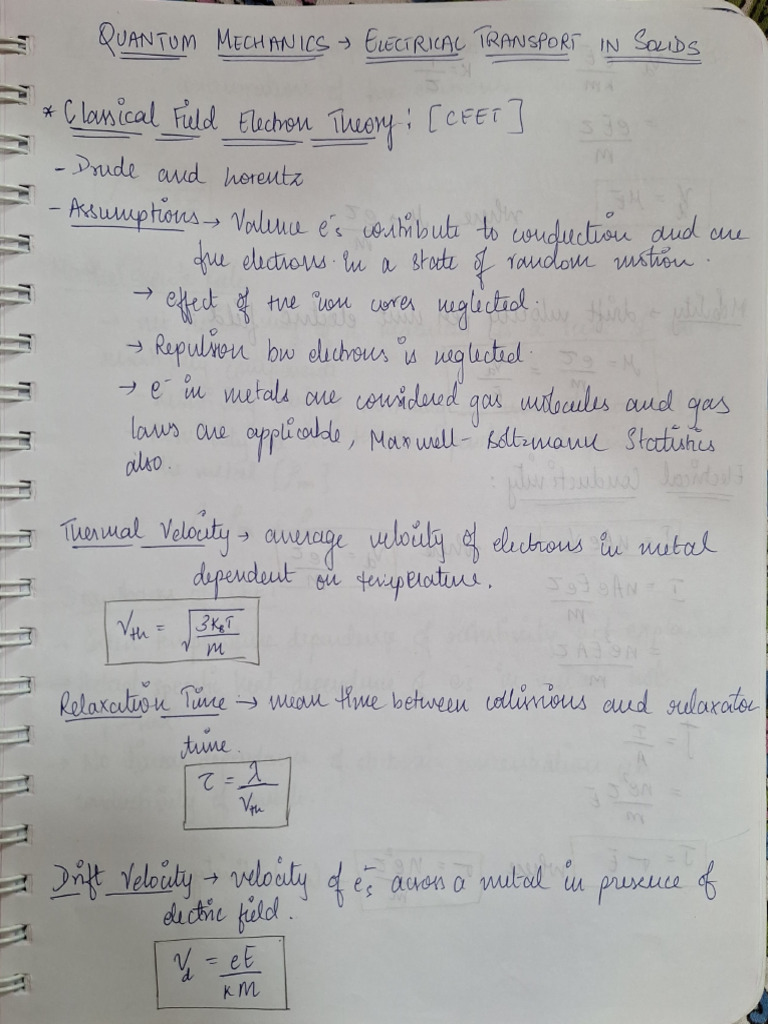 QUANTUM MECHANICS → ELECTRICAL TRANSPORT IN SOLIDS
* Classical Field Electron Theory : [CFET]
- Drude and Lorentz
- Assumptions → Valence e⁻s contribute to conduction and are
free electrons in a state of random motion.
→ effect of +ve ion cores neglected.
→ Repulsion bw electrons is neglected.
→ e⁻ in metals are considered gas molecules and gas
laws are applicable, Maxwell - Boltzmann Statistics
also.
Thermal Velocity → average velocity of electrons in metal
dependent on temperature.
V_th = √(3k_BT/m)
Relaxation Time → mean time between collisions and relaxation
time.
τ = λ/V_th
Drift Velocity → velocity of e⁻s across a metal in presence of
electric field.
V_d = eE/KM